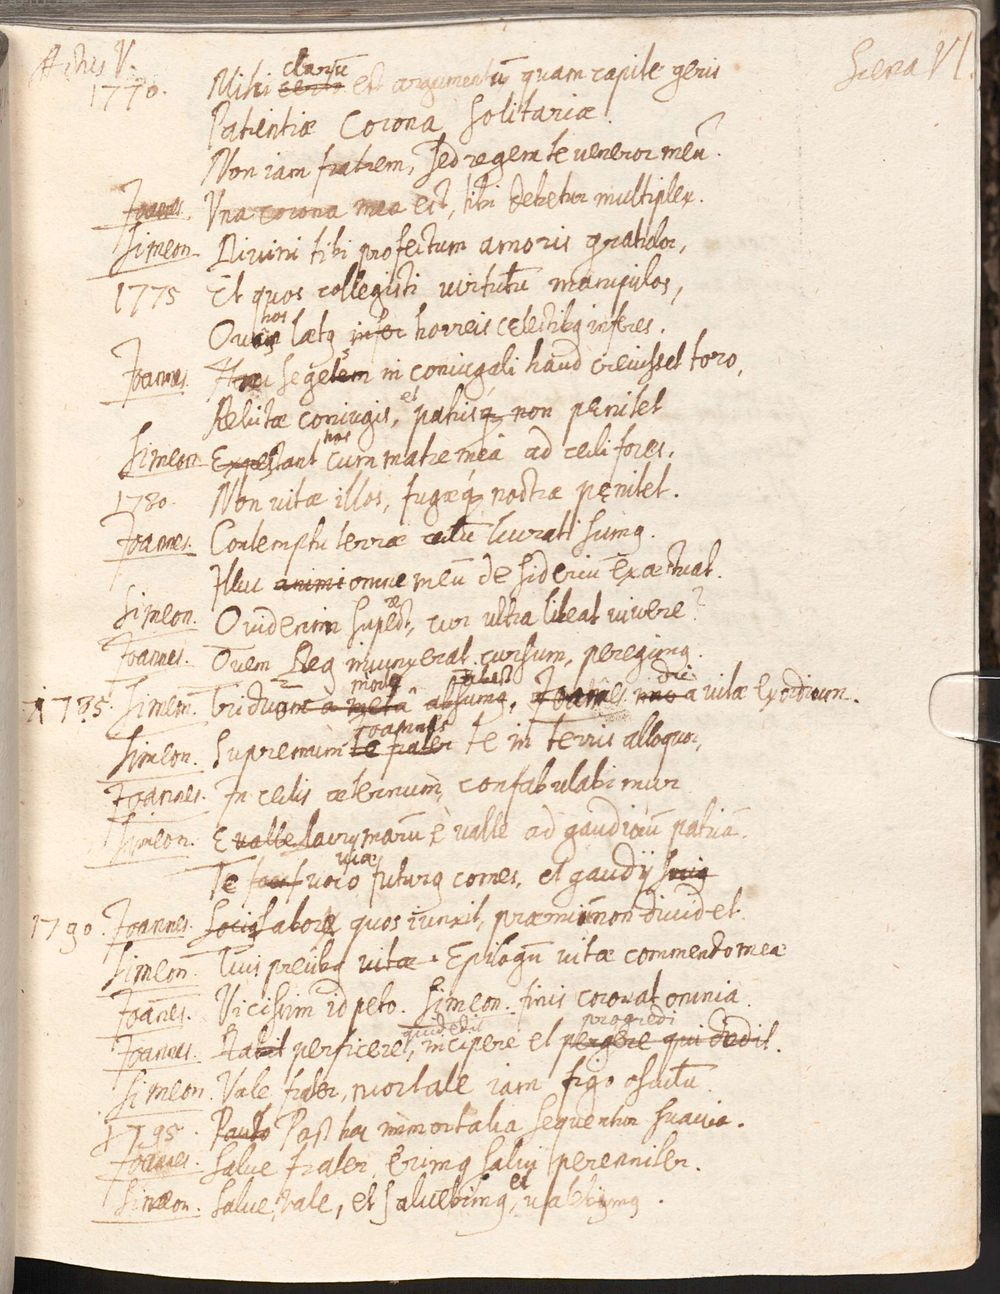 Actus V. Scena VI.
1770. Mihi certe clarũ est argumentũ quam capite geris
Patientiæ Corona solitariæ.
Non iam fratrem, sed regem te veneror meũ.
Joannes. Una corona mea est, tibi debetur multiplex.
Simeon. Divini tibi profectum amoris gratulor,
1775 Et quos collegisti virtutũ manipulos,
hos lætq horreis cęlestibq inferes.
Joannes. seges in coniugali haud crevisset toro,
Relictæ coniugis, et patrisq non pęnitet
Simeon. Expectant nos cum matre meâ ad cæli fores.
1780. Non vitæ illos, fugæq nostræ pęnitet.
Joannes. Contemptu terræ cælũ lucrati sumq.
Illuc animi omne meũ desideriũ exæstuat.
Simeon. Quid enim supest, cur ultra libeat vivere?
Joannes. Quem Rex iniunxerat cursum, peregimq.
1785. Simeon. Joannes. a vitæ exordium.
Simeon. Supremum te frater Joannes te in terris alloquor,
Joannes. In cęlis æternum confabulabimur
Simeon. E valle lacrymarũ è valle ad gaudiorũ patriã.
Te voco futurq comes, et gaudij
1790. Joannes. Socios labor quos iunxit, præmiũ non dividet.
Simeon. Tuis precibq vitæ. Epilogũ vitæ commendo meæ
Joannes. Vicissim id peto. Simeon. finis coronat omnia
Joannes. Dabit perficere, qui dedit incipere et pergere qui dedit progredi.
Simeon. Vale frater, mortale iam figo osculũ.
1795. Post hac immortalia sequentur suavia.
Joannes. Salve frater, erimq salvi perenniter.
Simeon. Salve, vale, et salvebimq, et valebimq.